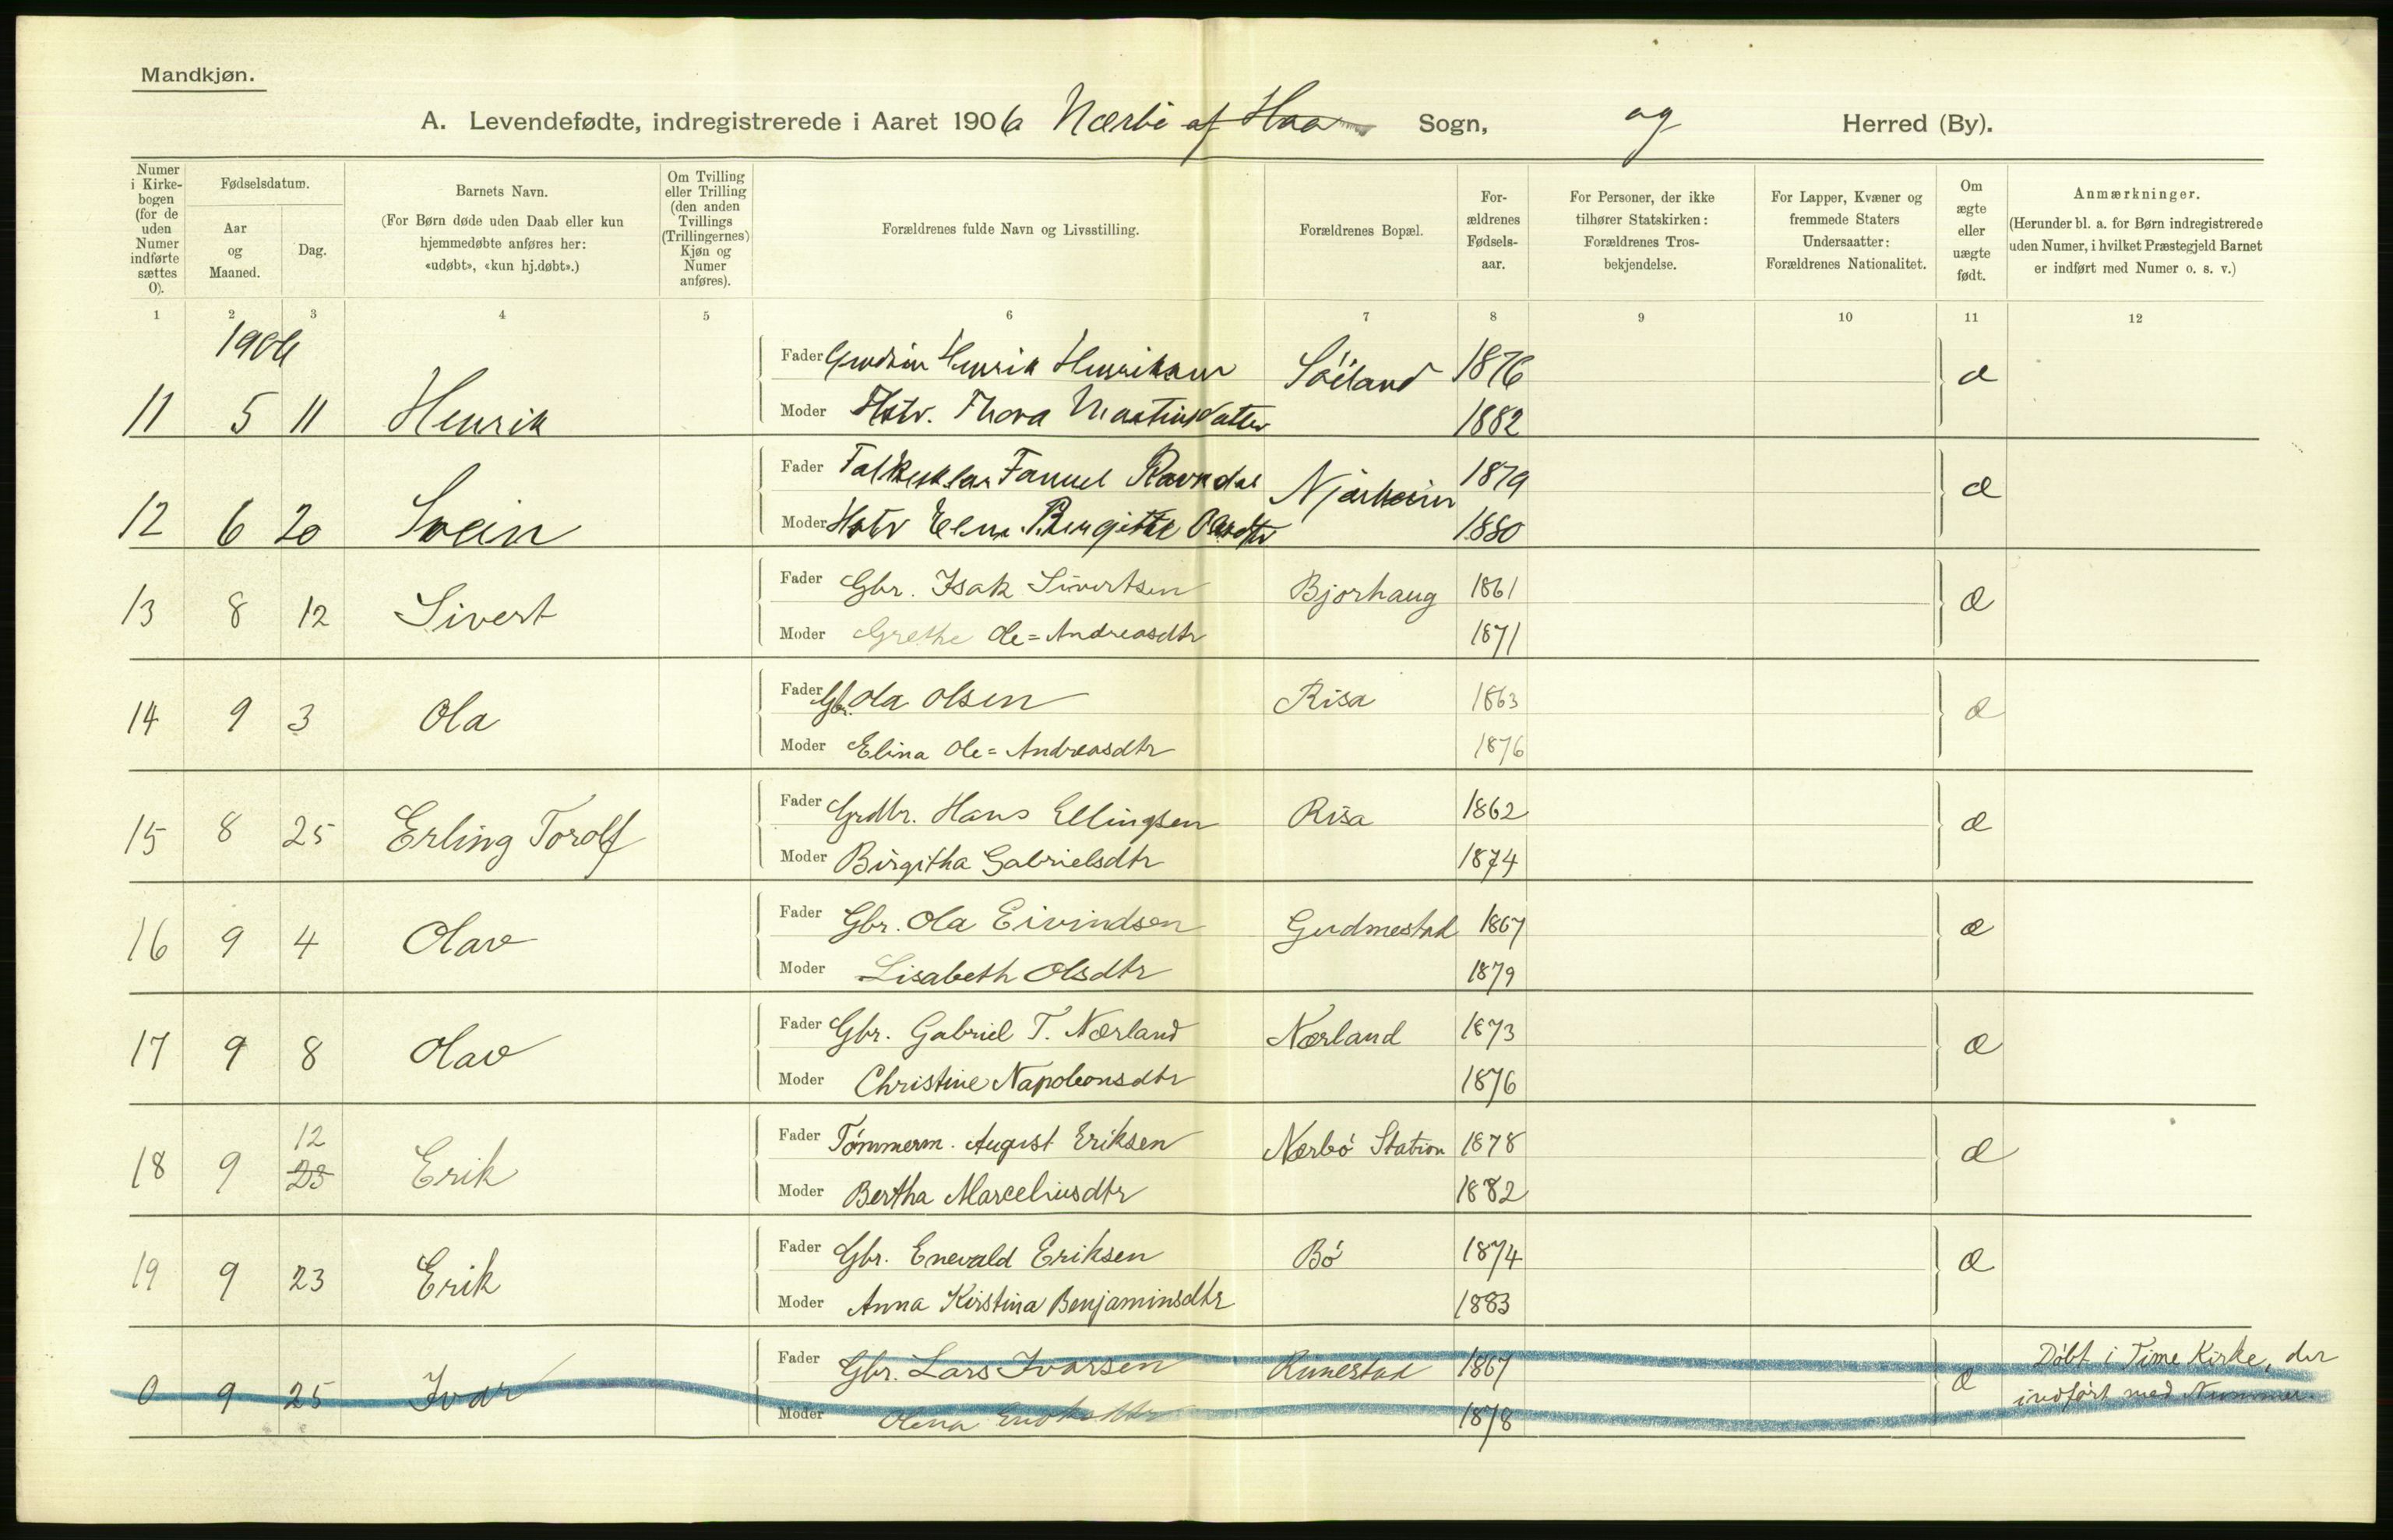 Mandkjøn.
A. Levendefødte, indregistrerede i Aaret 1906 Nærbö af Haa Sogn, og Herred (By).
Numer i Kirkebogen (for de uden Numer indførte sættes 0).
Fødselsdatum.
Aar og Maaned.
Dag.
Barnets Navn.
(For Børn døde uden Daab eller kun hjemmedøbte anføres her: «udøbt», «kun hj.døbt».)
Om Tvilling eller Trilling (den anden Tvillings (Trillingernes) Kjøn og Numer anføres).
Forældrenes fulde Navn og Livsstilling.
Forældrenes Bopæl.
Forældrenes Fødselsaar.
For Personer, der ikke tilhører Statskirken: Forældrenes Trosbekjendelse.
For Lapper, Kvæner og fremmede Staters Undersaatter: Forældrenes Nationalitet.
Om ægte eller uægte født.
Anmærkninger.
(Herunder bl. a. for Børn indregistrerede uden Numer, i hvilket Præstegjeld Barnet er indført med Numer o. s. v.)
1 2 3 4 5 6 7 8 9 10 11 12
1906
Fader Henrik Henriksen Söiland 1876 æ
11 5 11 Henrik Moder Hstr. Thora Martinsdatter 1882
Fader Fanuel Ravndal Njærheim 1879 æ
12 6 20 Svein Moder Hstr Birgitte 1880
Fader Gbr. Isak Sivertsen Bjorhaug 1861
13 8 12 Sivert æ
Moder Grethe Ole=Andreasdtr 1871
Fader Gbr. Ola Olsen Risa 1863
14 9 3 Ola æ
Moder Elina Ole=Andreasdtr 1876
Fader Grdbr. Hans Ellingsen Risa 1862
15 8 25 Erling Torolf æ
Moder Birgitha Gabrielsdtr 1874
Fader Gbr. Ola Eivindsen Gudmestad 1867
16 9 4 Olav æ
Moder Lisabeth Olsdtr 1879
Fader Gbr. Gabriel T. Nærland Nærland 1873
17 9 8 Olav æ
Moder Christine Napoleonsdtr 1876
12
Fader Tömmerm. August Eriksen Nærbö Station 1878
18 9 23 Erik æ
Moder Bertha Marceliusdtr 1882
Fader Gbr. Enevald Eriksen Bö 1874
19 9 23 Erik æ
Moder Anna Kirstina Benjaminsdtr 1883
Fader Gbr. Lars Ivarsen Rimestad 1867 Döbt i Time Kirke, der
0 9 25 Ivar æ indfört med Nummer.
Moder Olena 1878